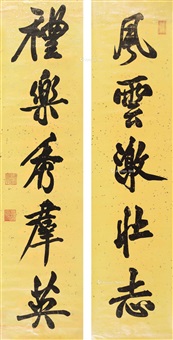 風雲激壯志
禮樂秀羣英